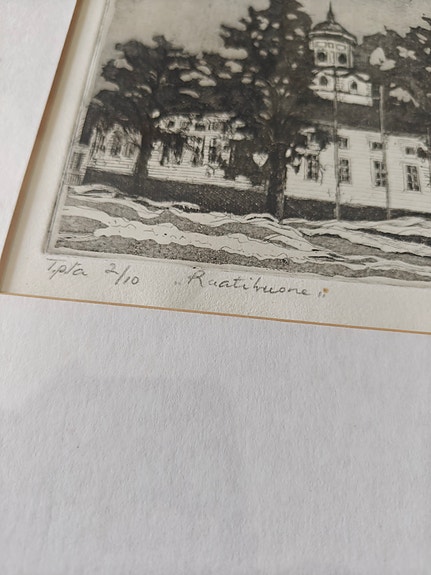 Tpl'a 2/10 „Raatihuone"